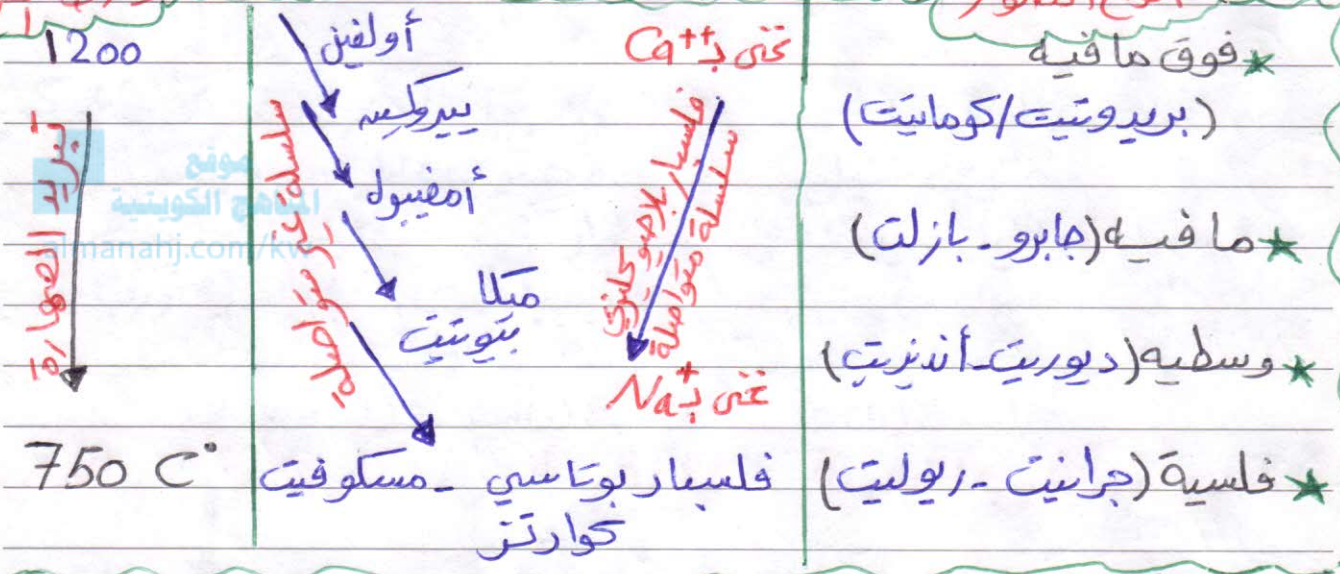 أنواع الصخور
★ فوق مافيه
(بريدوتيت/كوماتيت)
★ ما فيه (جابرو - بازلت)
★ وسطيه (ديوريت - أنديزيت)
★ فلسية (جرانيت - ريوليت)
غنى بـ Ca++
فلسبار بلاجيوكليزي
سلسلة متواصلة
غنى بـ Na+
أولفين
بيروكسين
أمفيبول
ميكا
بيوتيت
سلسلة غير متواصلة
فلسبار بوتاسي - مسكوفيت
كوارتز
1200
تبريد الصهارة
750 C°
موقع
المناهج الكويتية
almanahj.com/kw